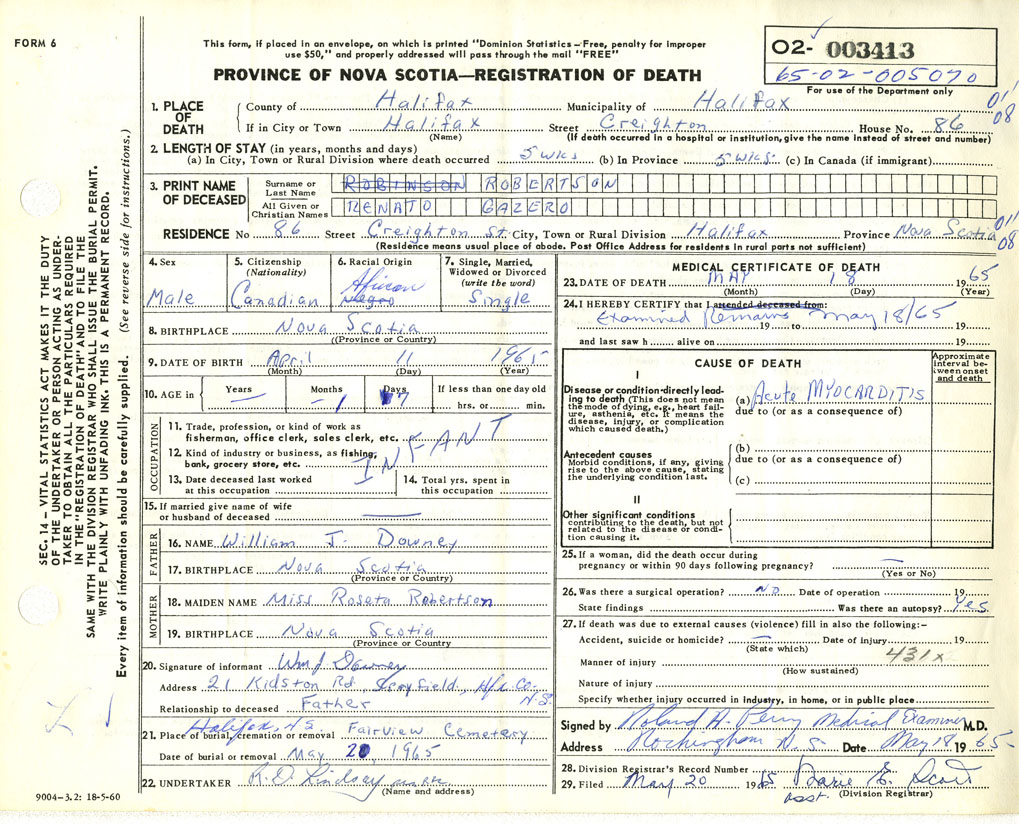 FORM 6
This form, if placed in an envelope, on which is printed "Dominion Statistics—Free, penalty for improper
use $50," and properly addressed will pass through the mail "FREE"
PROVINCE OF NOVA SCOTIA—REGISTRATION OF DEATH
02- 003413
65-02-005070
For use of the Department only
1. PLACE OF DEATH County of Halifax Municipality of Halifax 01
08
If in City or Town Halifax Street Creighton House No. 86
(Name) (If death occurred in a hospital or institution, give the name instead of street and number)
2. LENGTH OF STAY (in years, months and days)
(a) In City, Town or Rural Division where death occurred 5 wks (b) In Province 5 wks. (c) In Canada (if immigrant)
3. PRINT NAME OF DECEASED Surname or Last Name ROBINSON ROBERTSON
All Given or Christian Names RENATO GAZERO
RESIDENCE No 86 Street Creighton St. City, Town or Rural Division Halifax Province Nova Scotia 01
08
(Residence means usual place of abode. Post Office Address for residents in rural parts not sufficient)
4. Sex Male
5. Citizenship (Nationality) Canadian
6. Racial Origin African Negro
7. Single, Married, Widowed or Divorced (write the word) Single
8. BIRTHPLACE Nova Scotia
(Province or Country)
9. DATE OF BIRTH April 11 1965
(Month) (Day) (Year)
10. AGE in Years — Months 1 Days 7 If less than one day old
hrs. or min.
OCCUPATION
11. Trade, profession, or kind of work as
fisherman, office clerk, sales clerk, etc.
12. Kind of industry or business, as fishing,
bank, grocery store, etc.
INFANT
13. Date deceased last worked
at this occupation
14. Total yrs. spent in
this occupation
15. If married give name of wife
or husband of deceased —
FATHER
16. NAME William J. Downey
17. BIRTHPLACE Nova Scotia
(Province or Country)
MOTHER
18. MAIDEN NAME Miss Roseta Robertson
19. BIRTHPLACE Nova Scotia
(Province or Country
20. Signature of informant Wm J Downey
Address 21 Kidston Rd, Hfx. Co. N.S.
Relationship to deceased Father
Halifax, N.S.
21. Place of burial, cremation or removal Fairview Cemetery
Date of burial or removal May 20, 1965
22. UNDERTAKER R.D. Lindsay
(Name and address)
9004-3.2: 18-5-60
MEDICAL CERTIFICATE OF DEATH
23. DATE OF DEATH MAY 18 1965
(Month) (Day) (Year)
24. I HEREBY CERTIFY that I attended deceased from:
Examined Remains May 18/65
19 to 19
and last saw h alive on 19
CAUSE OF DEATH
Approximate interval between onset and death
I
Disease or condition directly leading to death (This does not mean the mode of dying, e.g., heart failure, asthenia, etc. It means the disease, injury, or complication which caused death.)
(a) Acute MYOCARDITIS
due to (or as a consequence of)
Antecedent causes
Morbid conditions, if any, giving rise to the above cause, stating the underlying condition last.
(b)
due to (or as a consequence of)
(c)
II
Other significant conditions
contributing to the death, but not related to the disease or condition causing it.
25. If a woman, did the death occur during
pregnancy or within 90 days following pregnancy? —
(Yes or No)
26. Was there a surgical operation? NO Date of operation 19
State findings Was there an autopsy? Yes
27. If death was due to external causes (violence) fill in also the following:—
Accident, suicide or homicide? — Date of injury 19
(State which) 431x
Manner of injury
(How sustained)
Nature of injury
Specify whether injury occurred in industry, in home, or in public place
Signed by Roland A. Perry Medical Examiner M.D.
Address Rockingham N.S. Date May 18 1965
28. Division Registrar's Record Number
29. Filed May 20 1965 Marie E. Scott
asst. (Division Registrar)
SEC. 14 — VITAL STATISTICS ACT MAKES IT THE DUTY
OF THE UNDERTAKER OR PERSON ACTING AS UNDER-
TAKER TO OBTAIN ALL THE PARTICULARS REQUIRED
IN THE "REGISTRATION OF DEATH" AND TO FILE THE
SAME WITH THE DIVISION REGISTRAR WHO SHALL ISSUE THE BURIAL PERMIT.
WRITE PLAINLY WITH UNFADING INK. THIS IS A PERMANENT RECORD.
Every item of information should be carefully supplied. (See reverse side for instructions.)